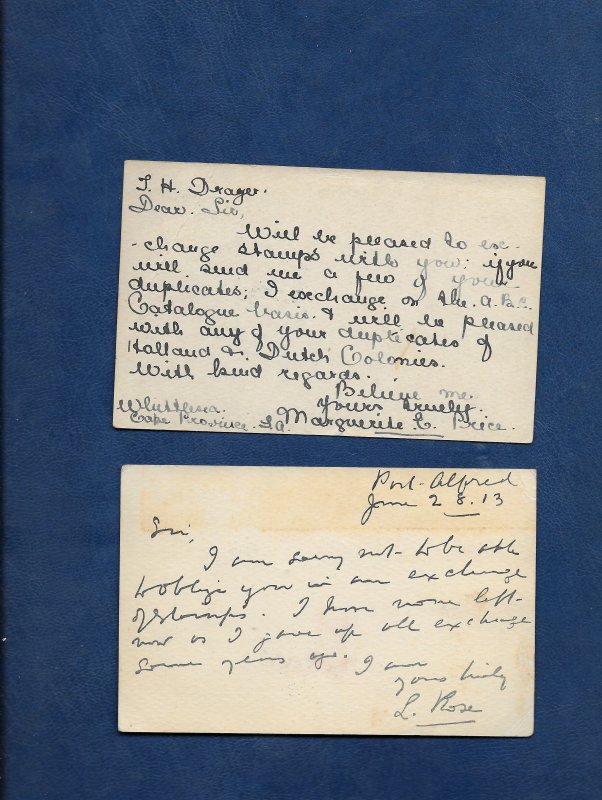 T. H. Drager.
Dear Sir,
Will be pleased to ex-
-change stamps with you; if you
will send me a few of your
duplicates; I exchange on the A.B.C.
Catalogue basis & will be pleased
with any of your duplicates of
Holland & Dutch Colonies.
With kind regards.
Believe me.
yours truely.
Marguerite C. Price.
Whittlesea.
Cape Province. S.A.
Port Alfred
June 28.13
Sir,
I am sorry not to be able
to oblige you in an exchange
of stamps. I have none left
now as I gave up all exchange
some years ago. I am
yours truly
L. Rose